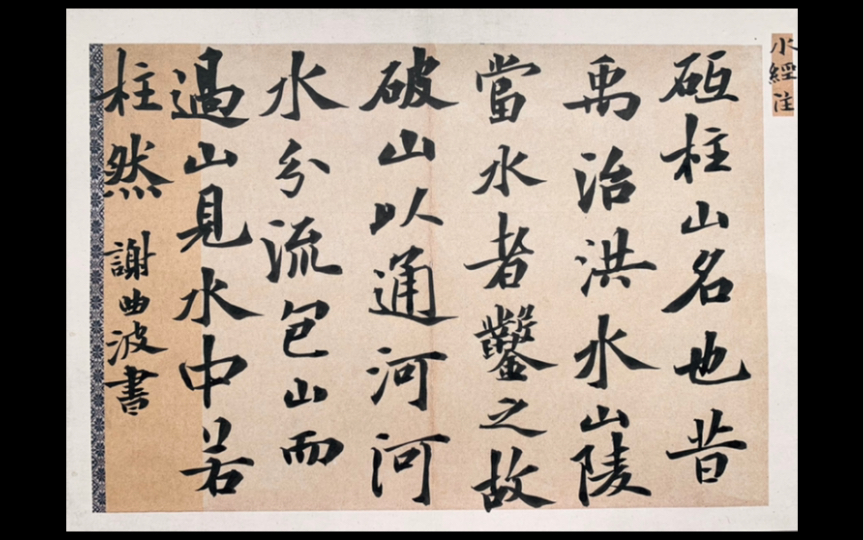 水經注
砥柱山名也昔
禹治洪水山陵
當水者鑿之故
破山以通河河
水分流包山而
過山見水中若
柱然
謝曲波書